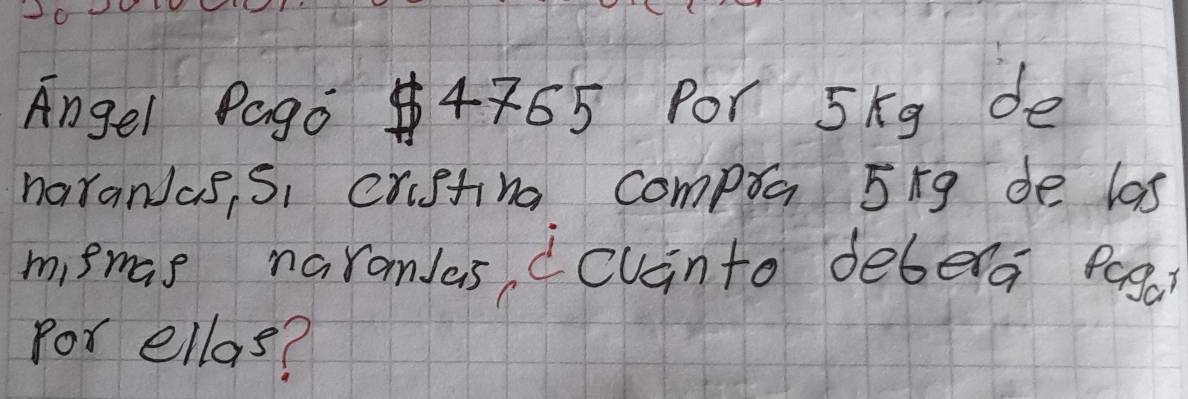 Ángel Pagó $4765 Por 5kg de
naranjas, Si cristina compra 5kg de las
mismas naranjas, ¿cuánto deberá Pagar
Por ellas?